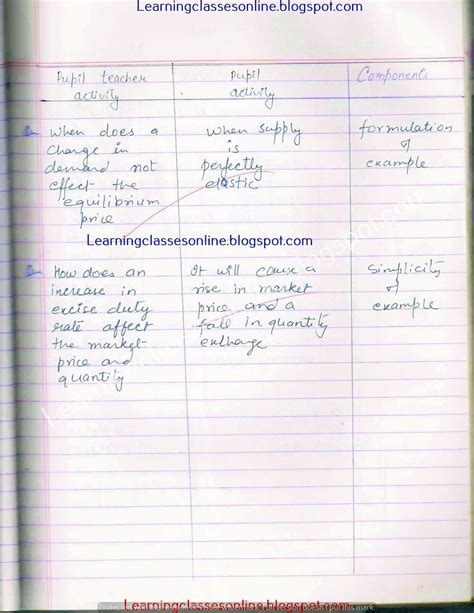 Learningclassesonline.blogspot.com
Pupil teacher activity
Pupil activity
Components
Qn
When does a
change in
demand not
effect the
equilibrium
price
when supply
is
perfectly
elastic
formulation
of
example
Learningclassesonline.blogspot.com
Qn
How does an
increase in
excise duty
rate affect
the market
price and
quantity
It will cause a
rise in market
price and a
fall in quantity
exchange
simplicity
of
example
Learningclassesonline.blogspot.com